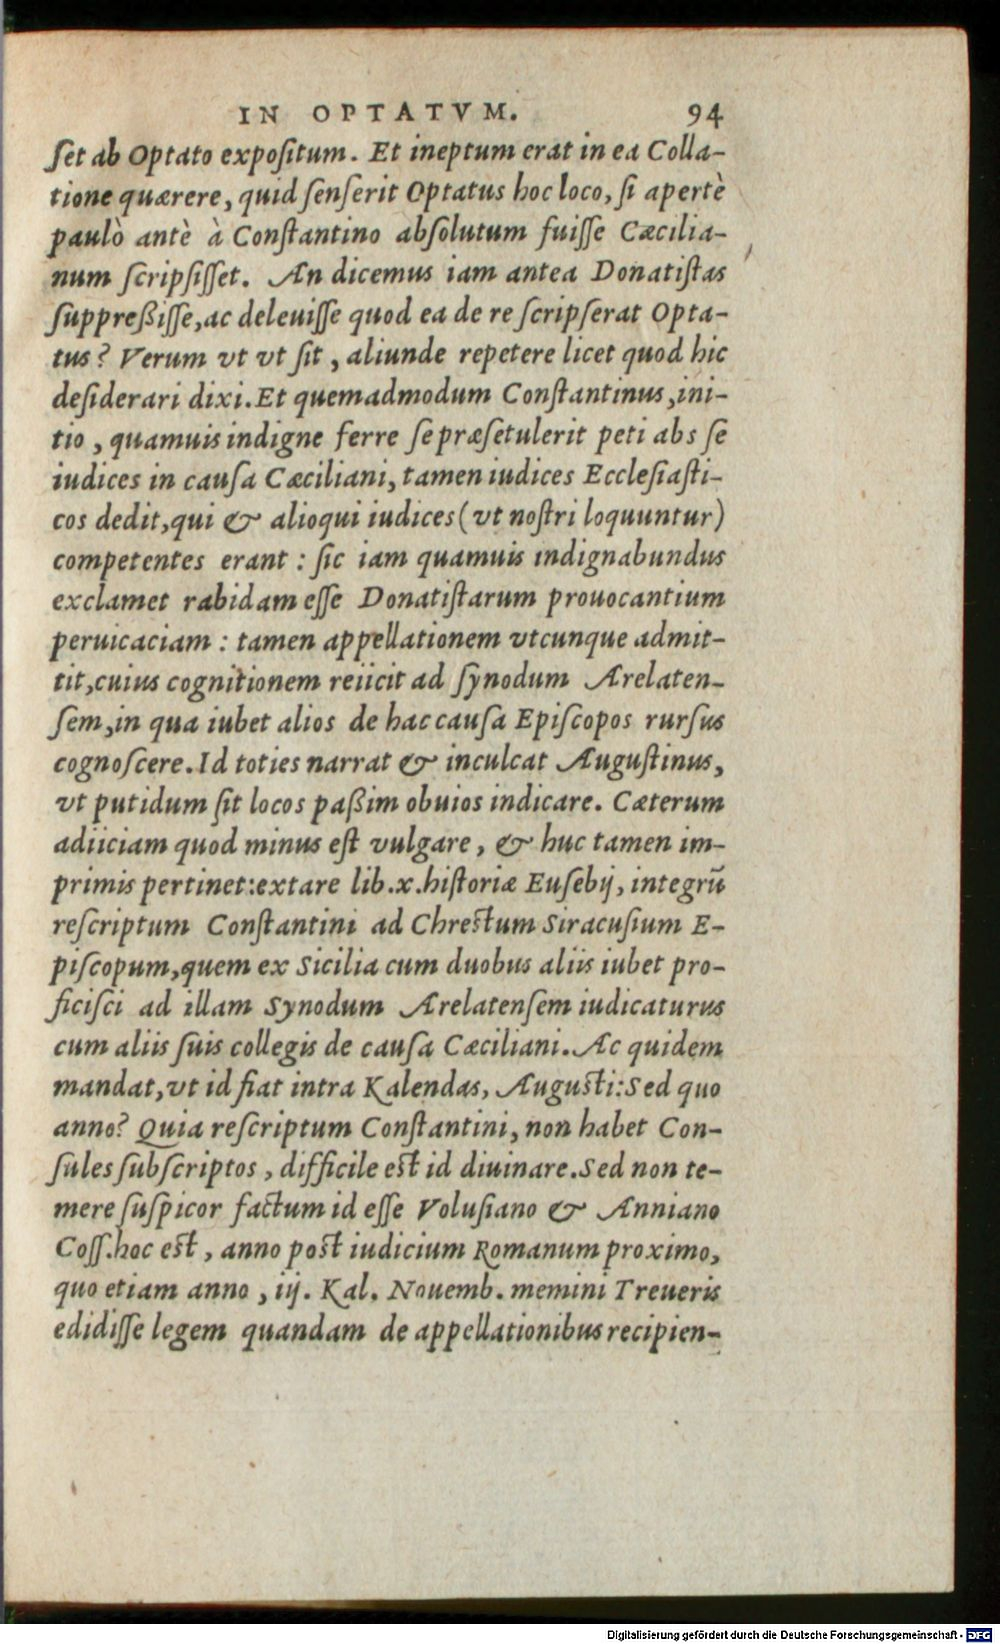 IN OPTATVM. 94
ſet ab Optato expoſitum. Et ineptum erat in ea Colla-
tione quærere, quid ſenſerit Optatus hoc loco, ſi apertè
paulò antè à Conſtantino abſolutum fuiſſe Cæcilia-
num ſcripſiſſet. An dicemus iam antea Donatiſtas
ſuppreßiſſe, ac deleuiſſe quod ea de re ſcripſerat Opta-
tus? Verum vt vt ſit, aliunde repetere licet quod hic
deſiderari dixi. Et quemadmodum Conſtantinus, ini-
tio, quamuis indigne ferre ſe præſetulerit peti abs ſe
iudices in cauſa Cæciliani, tamen iudices Eccleſiaſti-
cos dedit, qui & alioqui iudices (vt noſtri loquuntur)
competentes erant: ſic iam quamuis indignabundus
exclamet rabidam eſſe Donatiſtarum prouocantium
peruicaciam: tamen appellationem vtcunque admit-
tit, cuius cognitionem reiicit ad ſynodum Arelaten-
ſem, in qua iubet alios de hac cauſa Epiſcopos rurſus
cognoſcere. Id toties narrat & inculcat Auguſtinus,
vt putidum ſit locos paßim obuios indicare. Cæterum
adiiciam quod minus eſt vulgare, & huc tamen im-
primis pertinet: extare lib. x. hiſtoriæ Euſebij, integrũ
reſcriptum Conſtantini ad Chreſtum Siracuſium E-
piſcopum, quem ex Sicilia cum duobus aliis iubet pro-
ficiſci ad illam Synodum Arelatenſem iudicaturus
cum aliis ſuis collegis de cauſa Cæciliani. Ac quidem
mandat, vt id fiat intra Kalendas, Auguſti: Sed quo
anno? Quia reſcriptum Conſtantini, non habet Con-
ſules ſubſcriptos, difficile eſt id diuinare. Sed non te-
mere ſuſpicor factum id eſſe Voluſiano & Anniano
Coſſ. hoc eſt, anno poſt iudicium Romanum proximo,
quo etiam anno, iij. Kal. Nouemb. memini Treueris
edidiſſe legem quandam de appellationibus recipien-
Digitalisierung gefördert durch die Deutsche Forschungsgemeinschaft - DFG